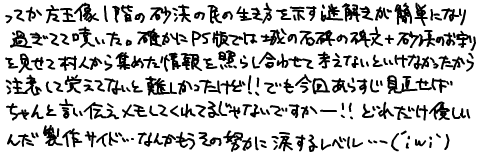 ってか左王像1階の砂漠の民の生き方を示す謎解きが簡単になり
過ぎてて噴いた。確かにPS版では城の石碑の碑文+砂漠のお守り
を見せて村人から集めた情報を照らし合わせて考えないといけなかったから
注意して覚えてないと難しかったけど!!でも今回あらすじ見直せば
ちゃんと言い伝えメモしてくれてるじゃないですかー!!どれだけ優しい
んだ製作サイド…なんかもうその努力に涙するレベル…(´;ω;`)